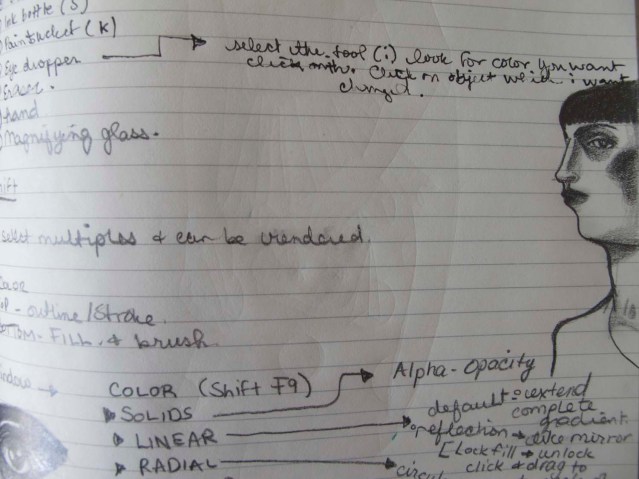 Ink bottle (S)
Paintbucket (K)
Eye dropper
select the tool (i) look for color you want
click on object which i want
changed.
Eraser.
Hand
Magnifying glass.
select multiples & can be
outline / Stroke.
BOTTOM - FILL. & brush.
COLOR (Shift F9)
Alpha - Opacity
SOLIDS
default: extend
complete
gradient.
LINEAR
reflection → like mirror
[Lock fill → unlock
RADIAL
click & drag to